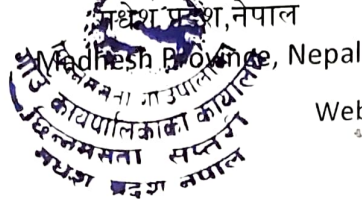 मधेश प्रदेश,नेपाल
Madhesh Province, Nepal
Web
छिन्नमस्ता गाउँपालिका
गाउँ कार्यपालिकाको कार्यालय
छिन्नमस्ता सप्तरी
मधेश प्रदेश नेपाल